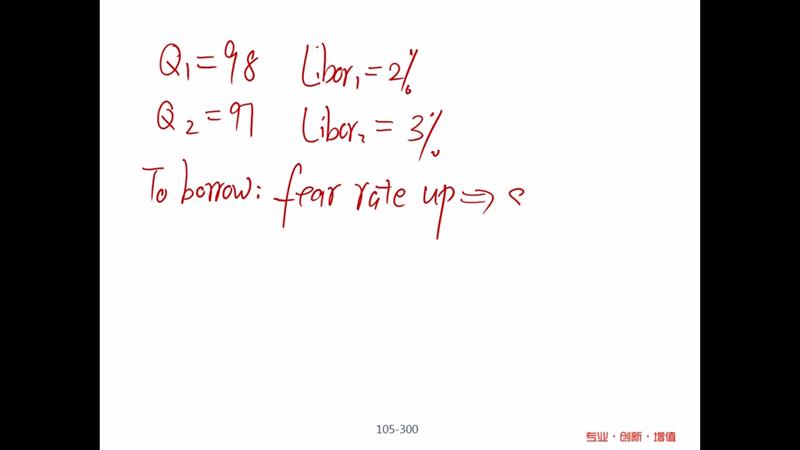 Q1=98 Libor1=2%
Q2=97 Libor2=3%
To borrow: fear rate up⇒
105-300
专业·创新·增值